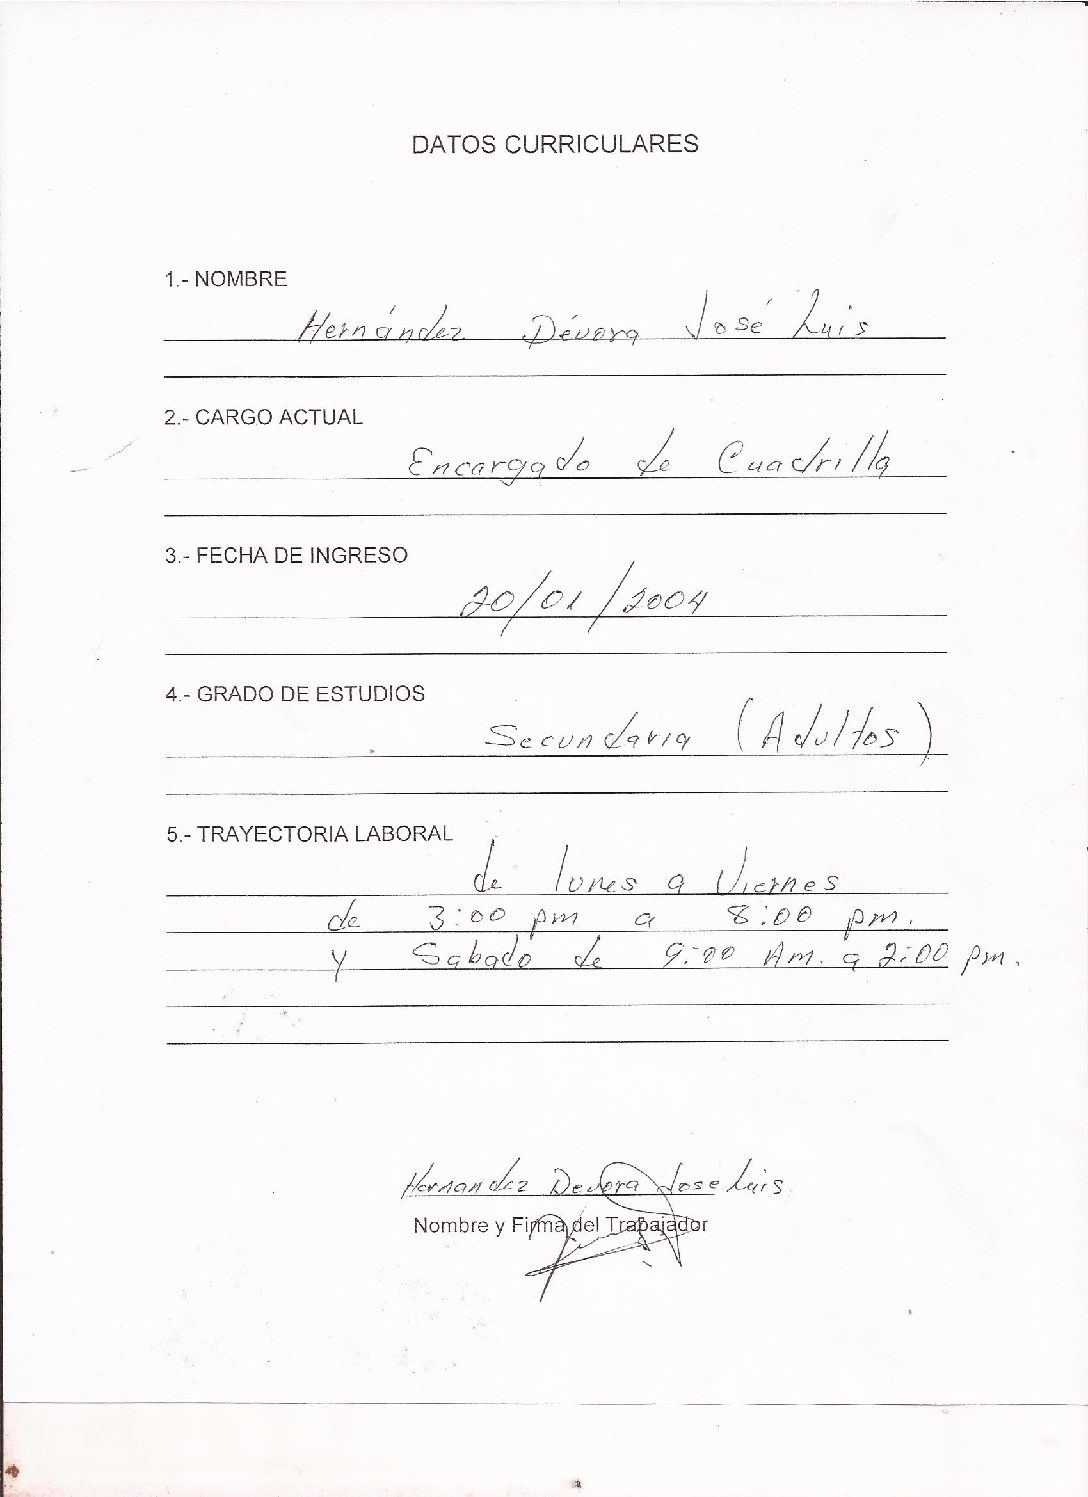 DATOS CURRICULARES
1.- NOMBRE
Hernández Dévora José Luis
2.- CARGO ACTUAL
Encargado de Cuadrilla
3.- FECHA DE INGRESO
20/01/2004
4.- GRADO DE ESTUDIOS
Secundaria (Adultos)
5.- TRAYECTORIA LABORAL
de lunes a Viernes
de 3:00 pm a 8:00 pm.
y Sabado de 9:00 Am. a 2:00 pm.
Hernandez Devora Jose Luis
Nombre y Firma del Trabajador